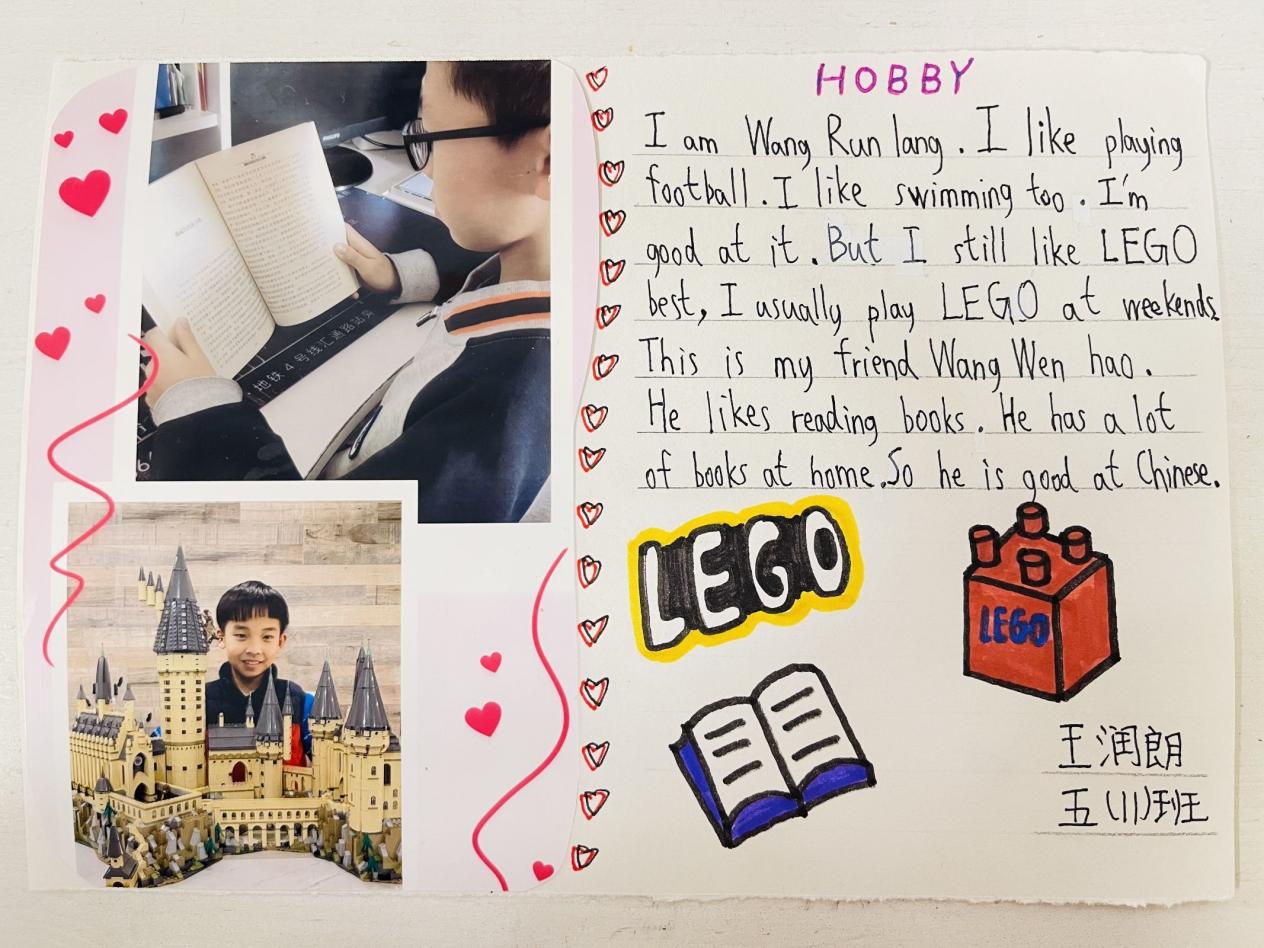 HOBBY
I am Wang Run lang. I like playing
football. I like swimming too. I'm
good at it. But I still like LEGO
best, I usually play LEGO at weekends.
This is my friend Wang Wen hao.
He likes reading books. He has a lot
of books at home. So he is good at Chinese.
LEGO
LEGO
王润朗
五(11)班
地铁4号线汇通路站旁